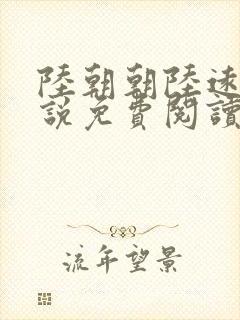 陸朝朝陸遠
說免費閱讀
流年望景